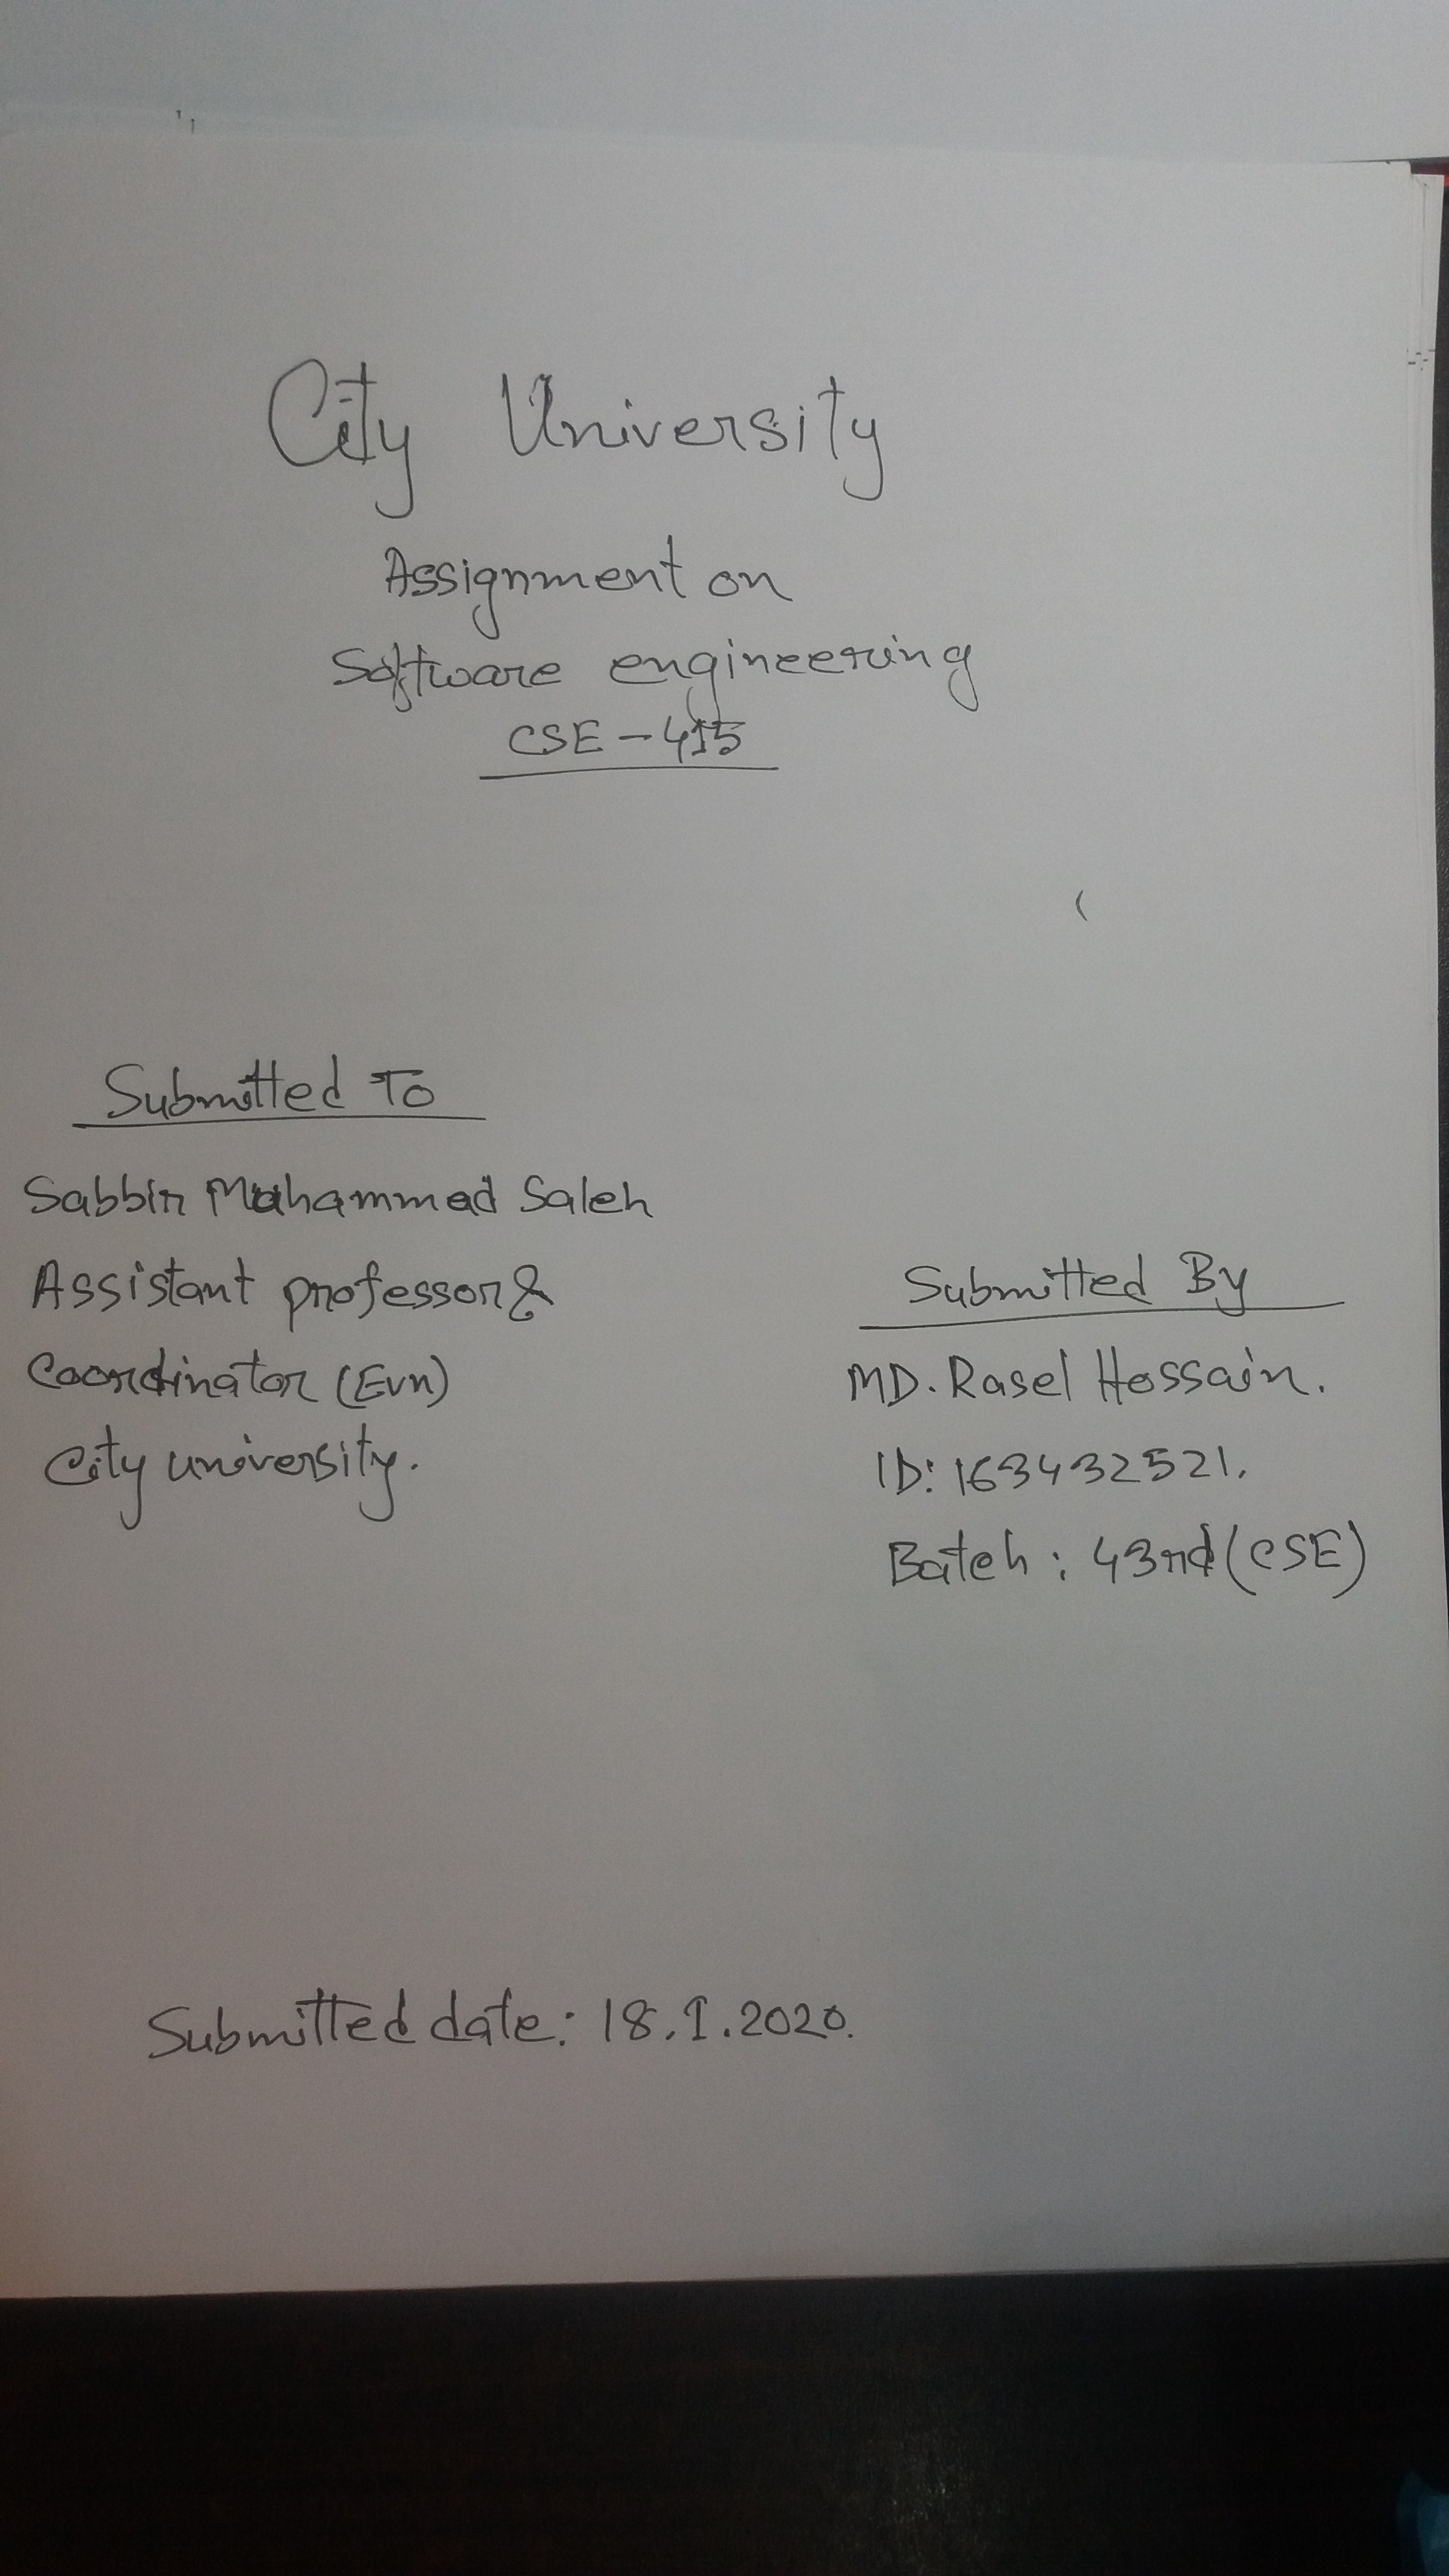 City University
Assignment on
Software engineering
CSE - 415
Submitted To
Sabbir Muhammad Saleh
Assistant professor &
Coordinator (Evn)
City university.
Submitted By
MD. Rasel Hossain.
ID: 163432521.
Batch : 43rd (CSE)
Submitted date: 18.1.2020.